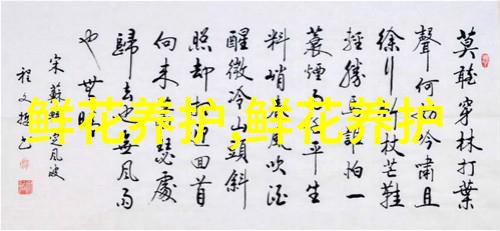 莫聽穿林打葉
聲何妨吟嘯且
徐行竹杖芒鞋
輕勝馬誰怕一
蓑煙雨任平生
料峭春風吹酒
醒微冷山頭斜
照却相迎回首
向來蕭瑟處
歸去也無風雨
也無晴
宋蘇軾定風波
程文
鲜花养护,鲜花养护